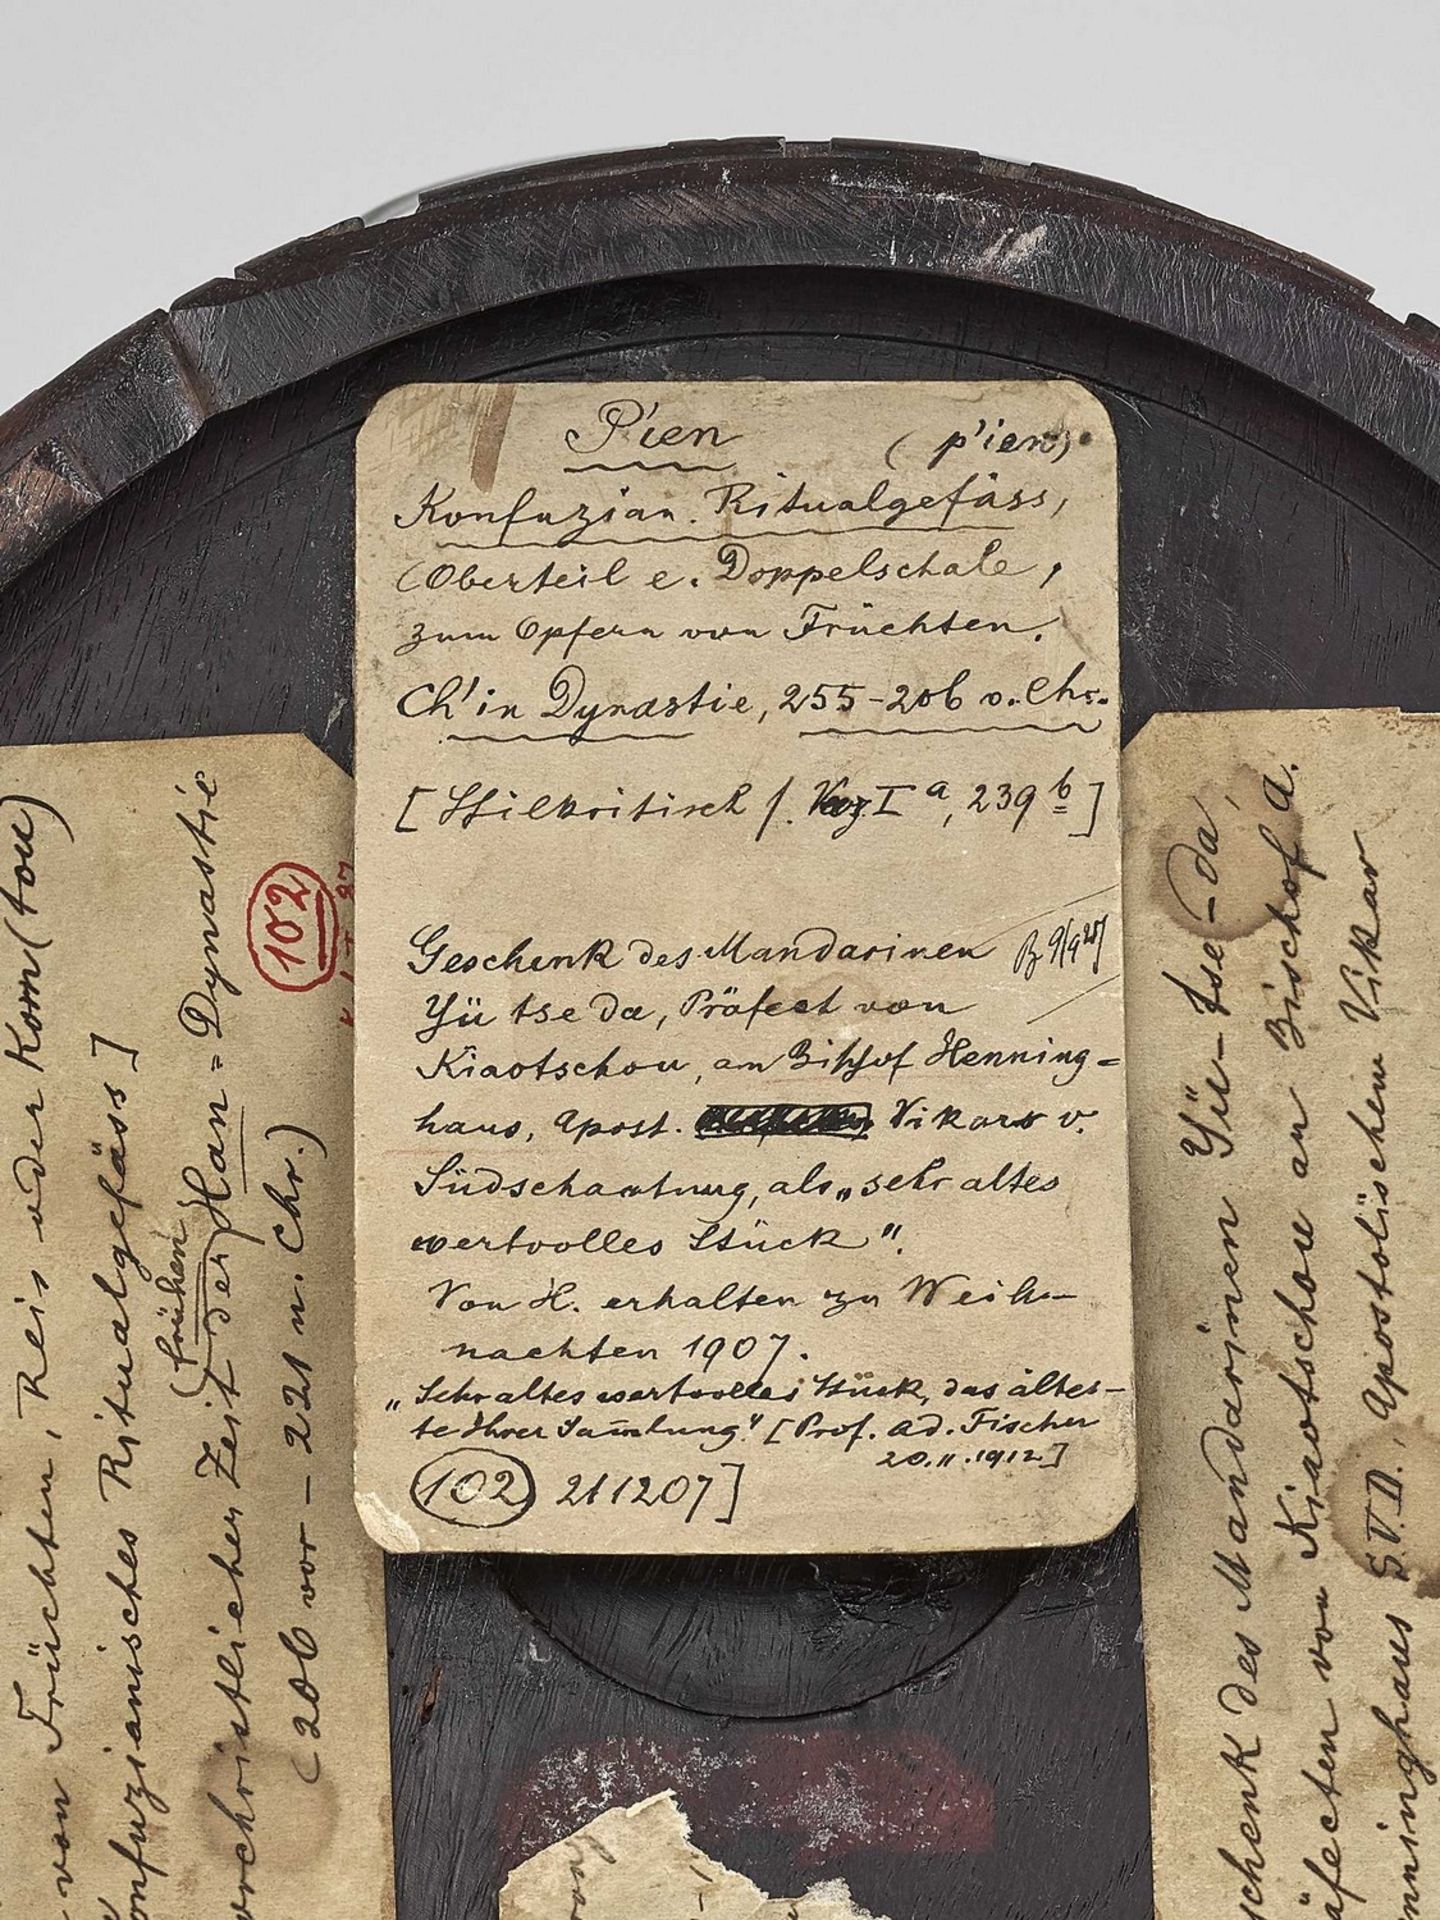 P'ien (p'ien)
Konfuzian. Ritualgefäss,
(Oberteil e. Doppelschale,
zum Opfern von Früchten.
Ch'in Dynastie, 255-206 v. Chr.
[Stilkritisch f. I a, 239 b]
Geschenk des Mandarinen
Yü tse da, Präfect von
Kiaotschou, am Bischof Henning=
haus, Apost. Vikars v.
Südschantung, als „sehr altes
wertvolles Stück".
Von H. erhalten zu Weih-
nachten 1907.
„Sehr altes wertvolles Stück, das ältes-
te Ihrer Sammlung." [Prof. Ad. Fischer
20.II.1912]
102 211207]
von Früchten, Reis oder Korn (tou)
onfuzianisches Ritualgefäss]
(frühen
orchristlicher Zeit der Han=Dynastie
(206 vor - 221 n. Chr.)
102
schenk des Mandarinen Yü-tse-da,
äfecten von Kiaotschou an Bischof A.
enninghaus S.V.D., Apostolischem Vikar